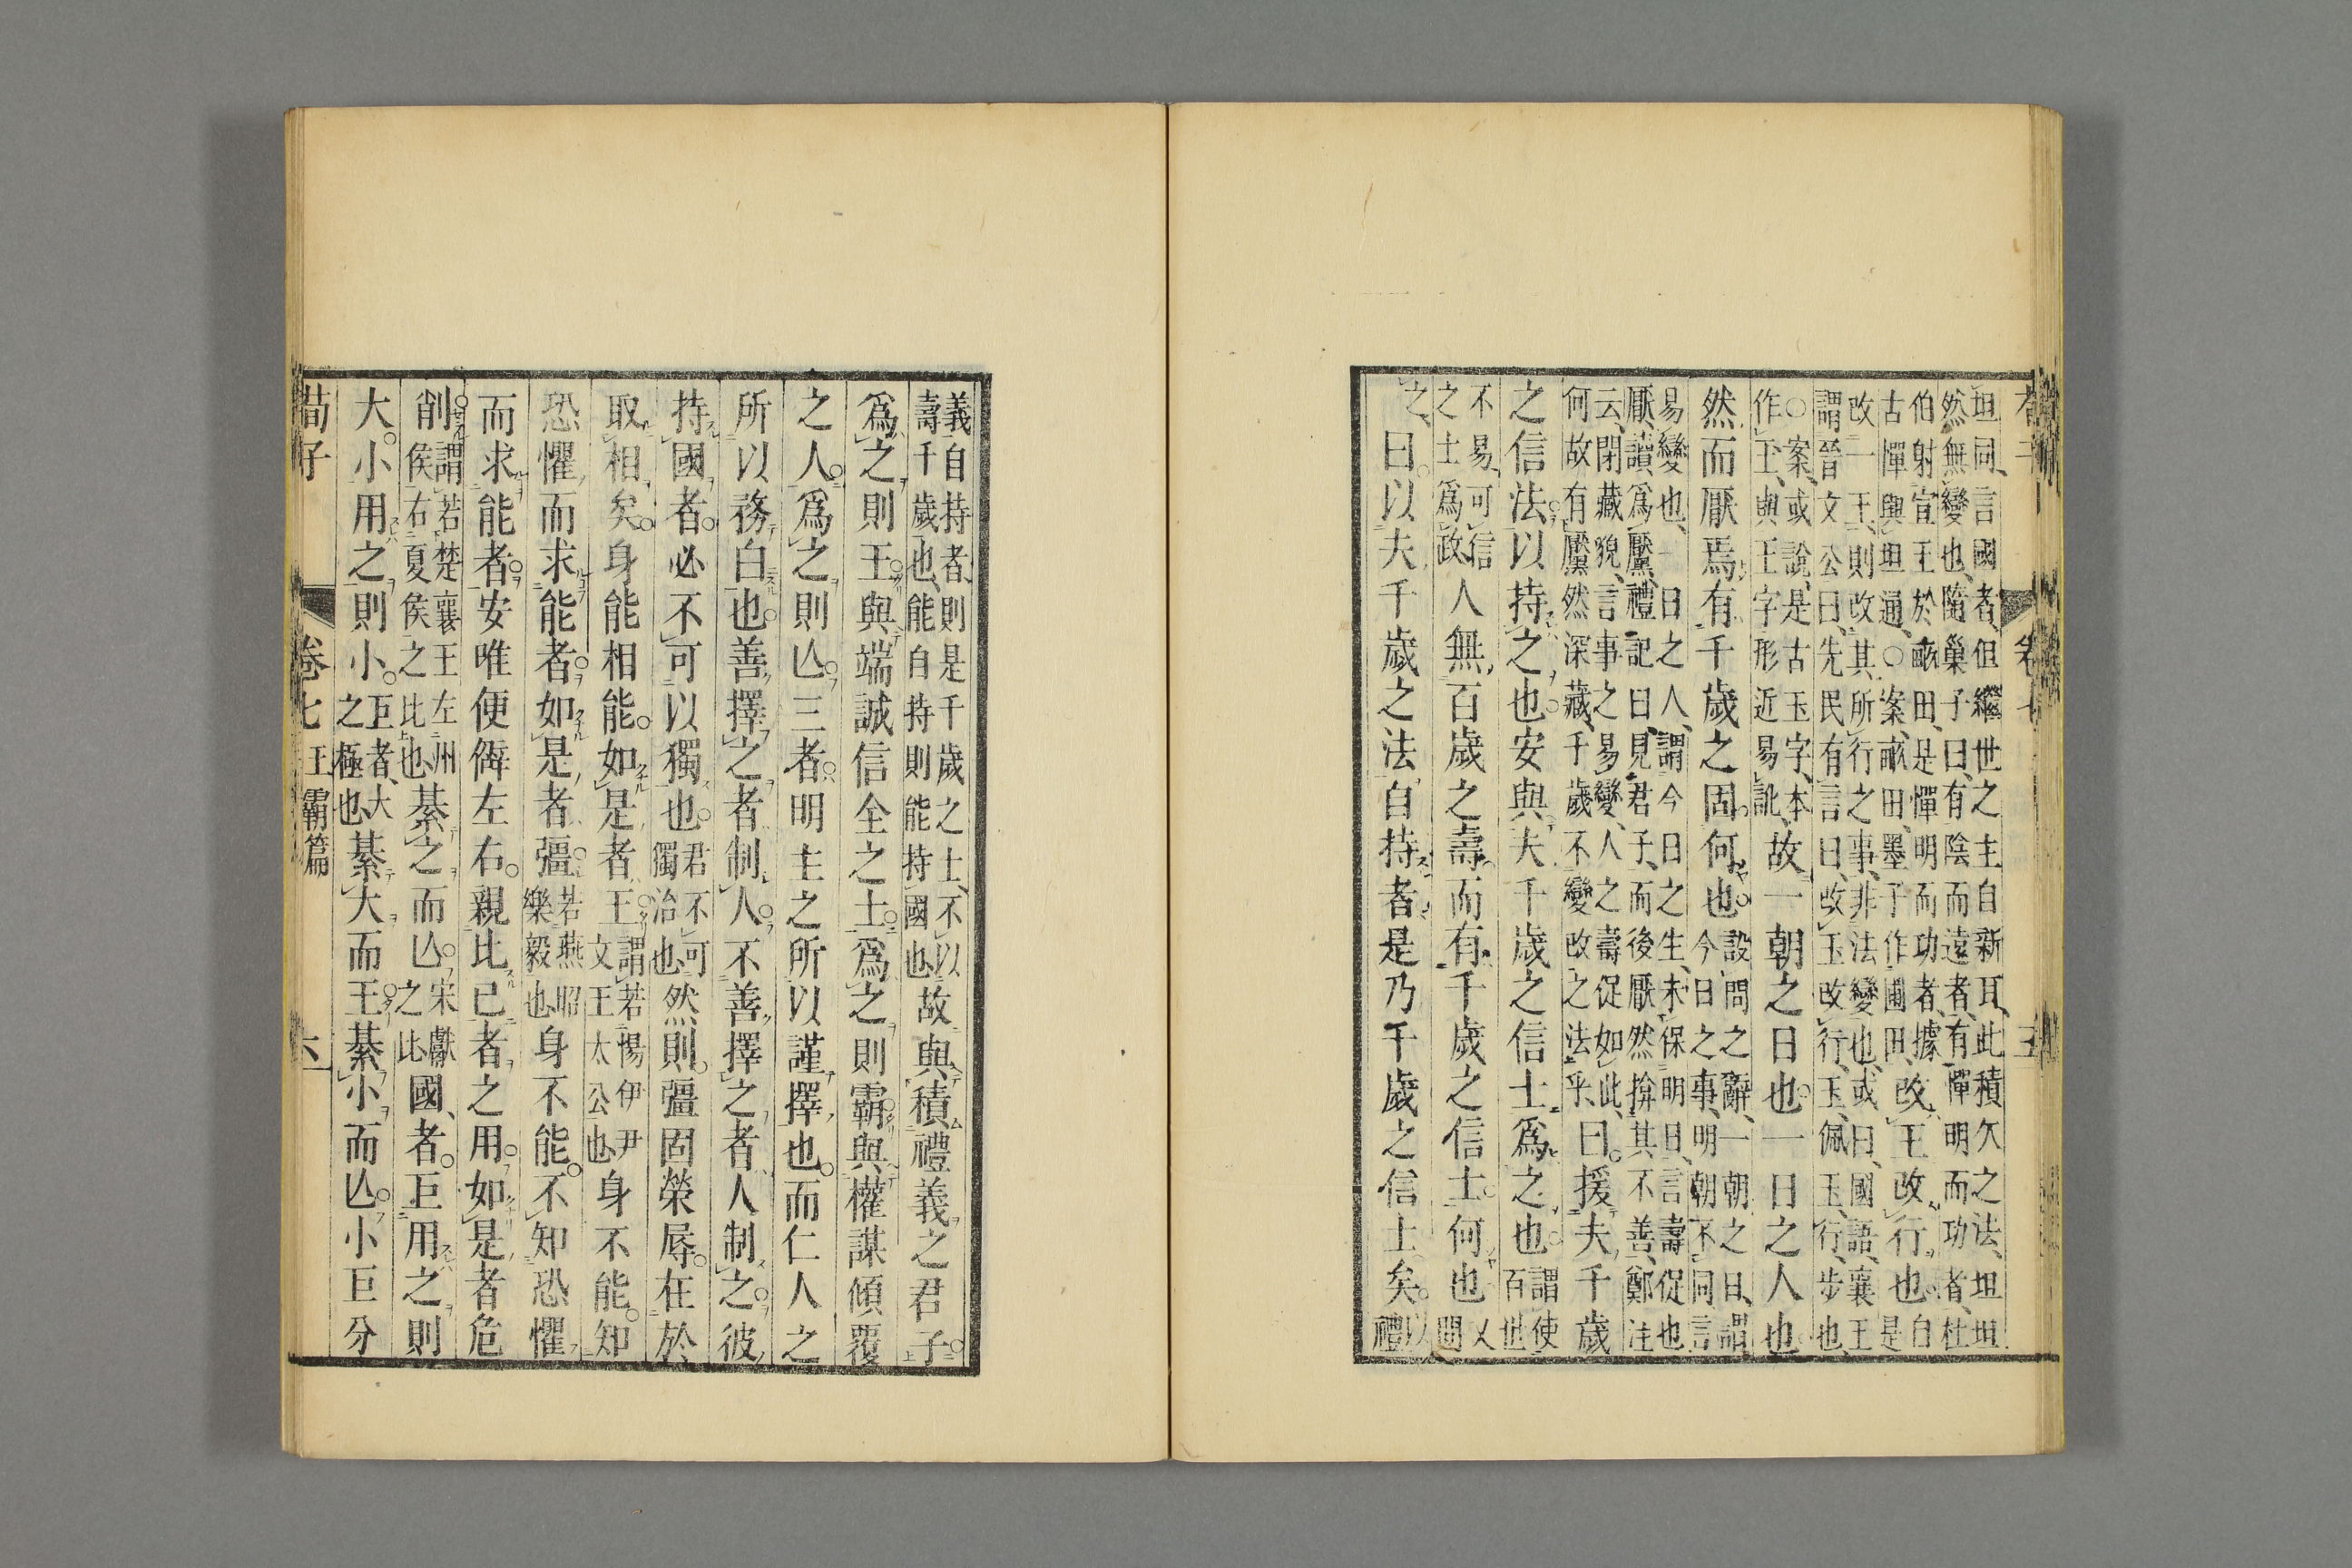 坦同、言國者、但繼世之主自新耳、此積久之法、坦坦
然無變也、隨巢子曰、有陰而遠者、有憚明而功者、杜
伯射宣王於畝田、是憚明而功者、據
古憚與坦通、○案、畝田、墨子作圃田、
改王改行也
自是
改一王、則改其所行之事、非法變也、或曰、國語、襄王
謂晉文公曰、先民有言曰、改玉改行、玉、佩玉、行、步也、
○案、或說、是古玉字、本
作王、與王字形近易訛、
故一朝之日也一日之人也
然而厭焉有千歲之固何也
設問之辭、一朝之日、謂
今日之事、明朝不同、言
易變也、一日之人、謂今日之生、未保明日、言壽促也
厭、讀爲黶、禮記曰、見君子、而後厭然揜其不善、鄭注
云、閉藏貌、言事之易變、人之壽促如此、
何故有黶然深藏、千歲不變改之法乎、
曰援夫千歲
之信法以持之也安與夫千歲之信士爲之也
謂使
百世
不易、可信
之士爲政、
人無百歲之壽而有千歲之信士何也
又問
之、
曰以夫千歲之法自持者是乃千歲之信士矣
以禮
義自持者、則是千歲之士、不以
壽千歲也、能自持則能持國也
故與積禮義之君子
爲之則王與端誠信全之士爲之則霸與權謀傾覆
之人爲之則亾三者明主之所以謹擇也而仁人之
所以務白也善擇之者制人不善擇之者人制之彼
持國者必不可以獨也
君不可
獨治也
然則彊固榮辱在於
取相矣身能相能如是者王
謂若湯伊尹
文王太公也
身不能知
恐懼而求能者如是者彊
若燕昭
樂毅也
身不能不知恐懼
而求能者安唯便僻左右親比己者之用如是者危
削
謂若楚襄王左州
侯右夏侯之比也
綦之而亾
宋獻
之比
國者巨用之則
大小用之則小
巨者、大
之極也
綦大而王綦小而亾小巨分
荀子
卷七
王霸篇
六